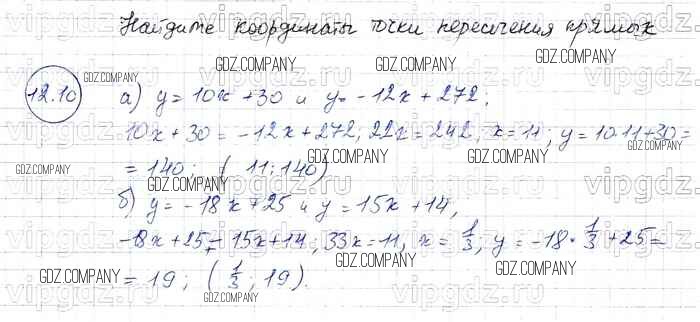 Найдите координаты точки пересечения прямых
12.10 а) y = 10x + 30 и y = -12x + 272,
10x + 30 = -12x + 272; 22x = 242, x = 11; y = 10·11+30 =
= 140; (11; 140)
б) y = -18x + 25 и y = 15x + 14,
-18x + 25 = 15x + 14; 33x = 11, x = 1/3; y = -18 · 1/3 + 25 =
= 19; (1/3; 19).
GDZ.COMPANY
vipgdz.ru